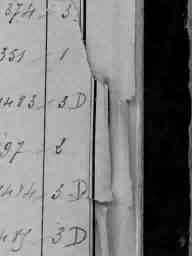 374 3
351 1
1483 3 D
97 2
1484 3 D
485 3 D